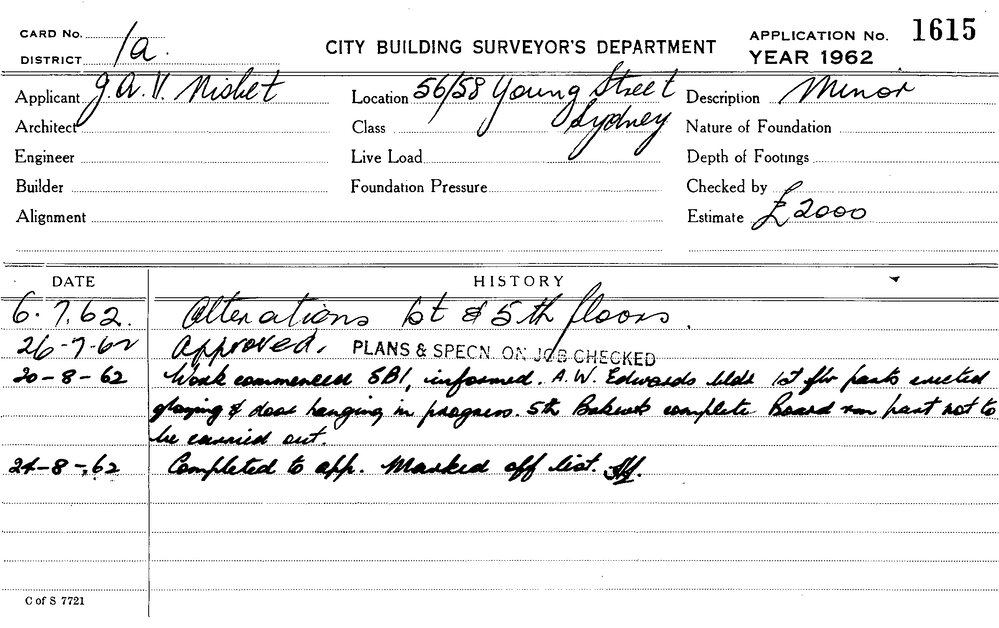 CARD No.
DISTRICT 1a.
CITY BUILDING SURVEYOR'S DEPARTMENT
APPLICATION No. 1615
YEAR 1962
Applicant J. A. V. Nisbet
Location 56/58 Young Street
Sydney
Description Minor
Architect
Class
Nature of Foundation
Engineer
Live Load
Depth of Footings
Builder
Foundation Pressure
Checked by
Alignment
Estimate £2000
DATE HISTORY
6.7.62. Alterations 1st & 5th floors.
26-7-62 Approved. PLANS & SPECN. ON JOB CHECKED
20-8-62 Work commenced SBI, informed. A.W. Edwards bldr 1st flr parts erected
glazing & door hanging in progress. 5th complete Board rm part not to
be carried out.
24-8-62 Completed to app. Marked off list.
C of S 7721